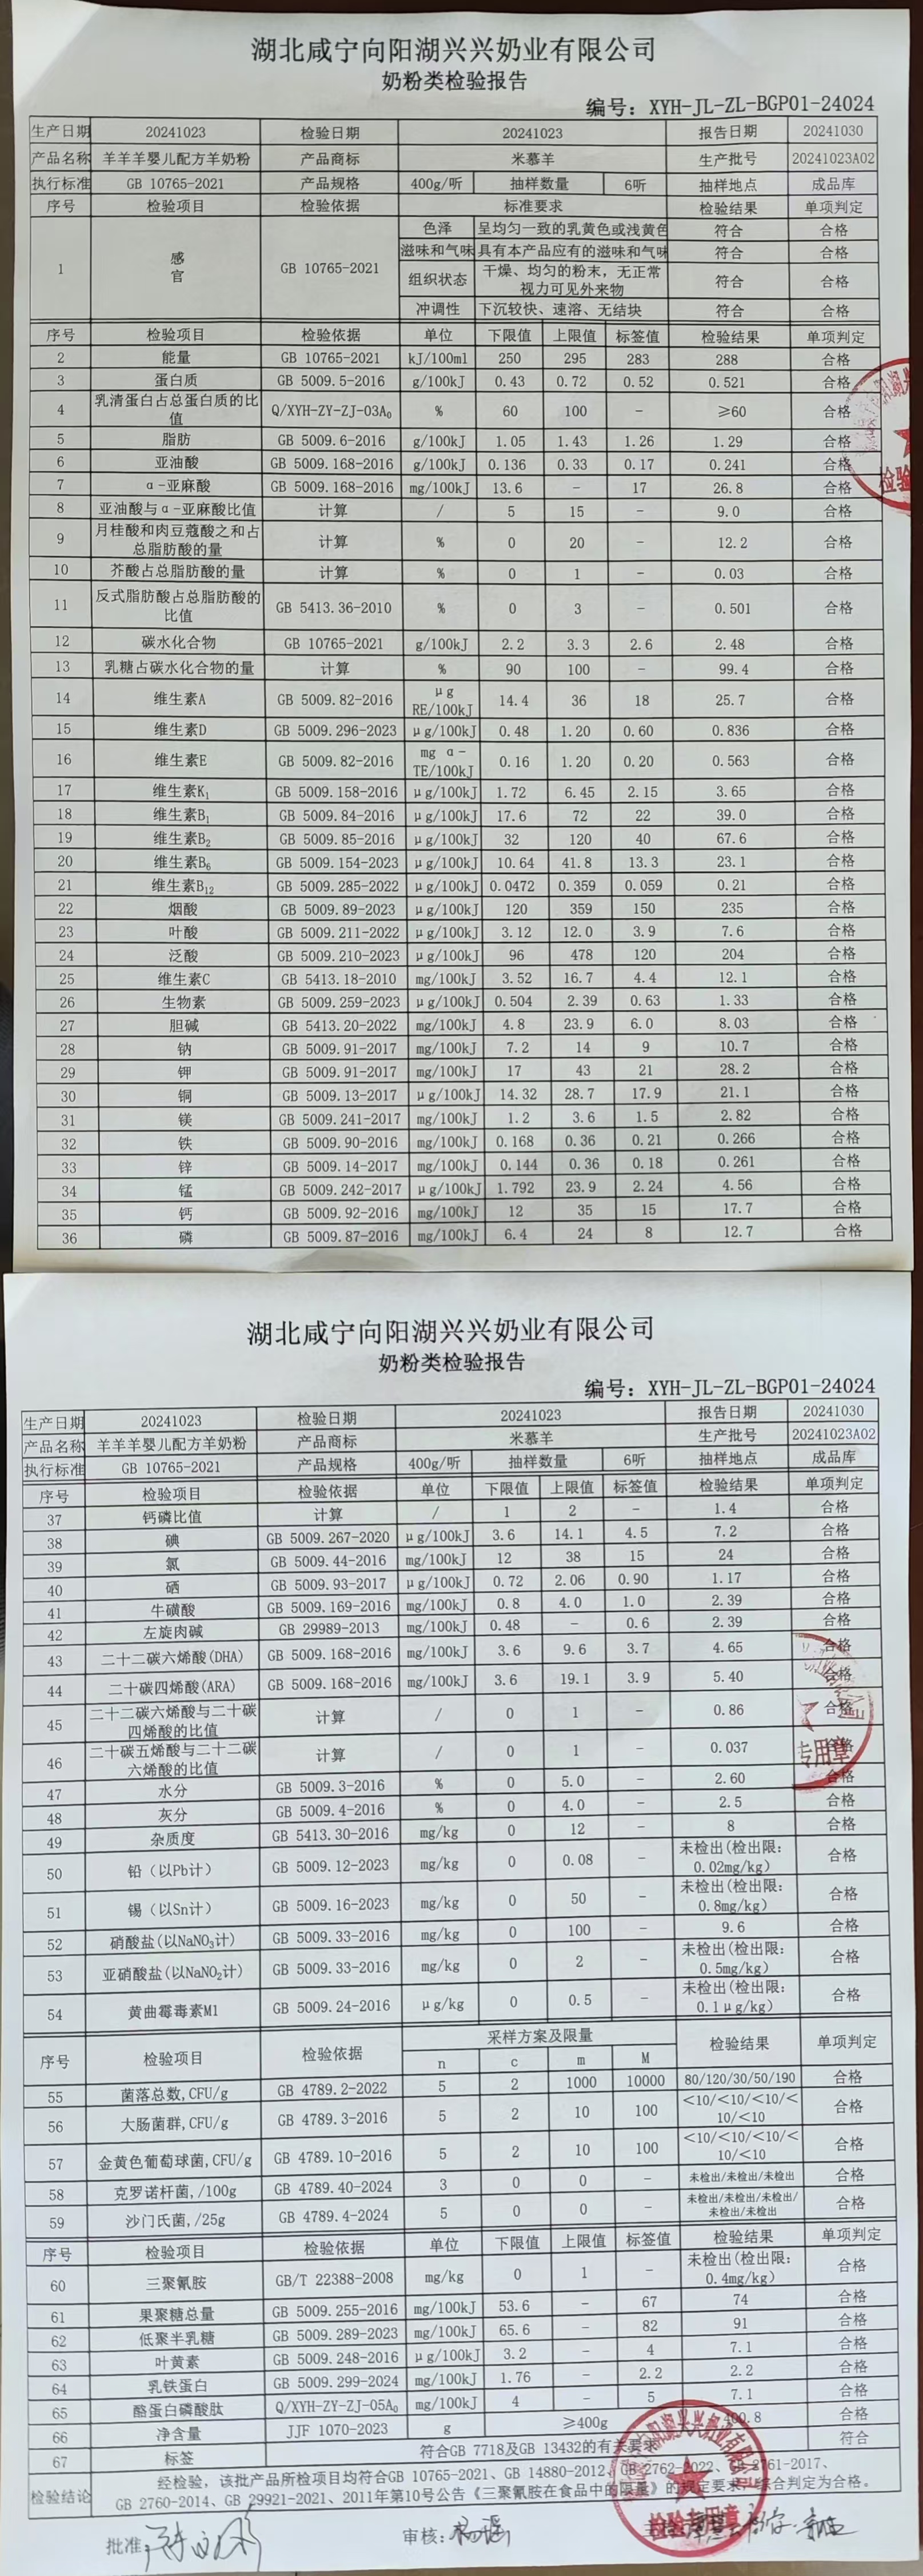 湖北咸宁向阳湖兴兴奶业有限公司
奶粉类检验报告
编号: XYH-JL-ZL-BGP01-24024
生产日期 20241023 检验日期 20241023 报告日期 20241030
产品名称 羊羊羊婴儿配方羊奶粉 产品商标 米慕羊 生产批号 20241023A02
执行标准 GB 10765-2021 产品规格 400g/听 抽样数量 6听 抽样地点 成品库
序号 检验项目 检验依据 标准要求 检验结果 单项判定
1 感官 GB 10765-2021 色泽 呈均匀一致的乳黄色或浅黄色 符合 合格
滋味和气味 具有本产品应有的滋味和气味 符合 合格
组织状态 干燥、均匀的粉末，无正常视力可见外来物 符合 合格
冲调性 下沉较快、速溶、无结块 符合 合格
序号 检验项目 检验依据 单位 下限值 上限值 标签值 检验结果 单项判定
2 能量 GB 10765-2021 kJ/100ml 250 295 283 288 合格
3 蛋白质 GB 5009.5-2016 g/100kJ 0.43 0.72 0.52 0.521 合格
4 乳清蛋白占总蛋白质的比值 Q/XYH-ZY-ZJ-03A₀ % 60 100 - ≥60 合格
5 脂肪 GB 5009.6-2016 g/100kJ 1.05 1.43 1.26 1.29 合格
6 亚油酸 GB 5009.168-2016 g/100kJ 0.136 0.33 0.17 0.241 合格
7 α-亚麻酸 GB 5009.168-2016 mg/100kJ 13.6 - 17 26.8 合格
8 亚油酸与α-亚麻酸比值 计算 / 5 15 - 9.0 合格
9 月桂酸和肉豆蔻酸之和占总脂肪酸的量 计算 % 0 20 - 12.2 合格
10 芥酸占总脂肪酸的量 计算 % 0 1 - 0.03 合格
11 反式脂肪酸占总脂肪酸的比值 GB 5413.36-2010 % 0 3 - 0.501 合格
12 碳水化合物 GB 10765-2021 g/100kJ 2.2 3.3 2.6 2.48 合格
13 乳糖占碳水化合物的量 计算 % 90 100 - 99.4 合格
14 维生素A GB 5009.82-2016 μg RE/100kJ 14.4 36 18 25.7 合格
15 维生素D GB 5009.296-2023 μg/100kJ 0.48 1.20 0.60 0.836 合格
16 维生素E GB 5009.82-2016 mg α-TE/100kJ 0.16 1.20 0.20 0.563 合格
17 维生素K₁ GB 5009.158-2016 μg/100kJ 1.72 6.45 2.15 3.65 合格
18 维生素B₁ GB 5009.84-2016 μg/100kJ 17.6 72 22 39.0 合格
19 维生素B₂ GB 5009.85-2016 μg/100kJ 32 120 40 67.6 合格
20 维生素B₆ GB 5009.154-2023 μg/100kJ 10.64 41.8 13.3 23.1 合格
21 维生素B₁₂ GB 5009.285-2022 μg/100kJ 0.0472 0.359 0.059 0.21 合格
22 烟酸 GB 5009.89-2023 μg/100kJ 120 359 150 235 合格
23 叶酸 GB 5009.211-2022 μg/100kJ 3.12 12.0 3.9 7.6 合格
24 泛酸 GB 5009.210-2023 μg/100kJ 96 478 120 204 合格
25 维生素C GB 5413.18-2010 mg/100kJ 3.52 16.7 4.4 12.1 合格
26 生物素 GB 5009.259-2023 μg/100kJ 0.504 2.39 0.63 1.33 合格
27 胆碱 GB 5413.20-2022 mg/100kJ 4.8 23.9 6.0 8.03 合格
28 钠 GB 5009.91-2017 mg/100kJ 7.2 14 9 10.7 合格
29 钾 GB 5009.91-2017 mg/100kJ 17 43 21 28.2 合格
30 铜 GB 5009.13-2017 μg/100kJ 14.32 28.7 17.9 21.1 合格
31 镁 GB 5009.241-2017 mg/100kJ 1.2 3.6 1.5 2.82 合格
32 铁 GB 5009.90-2016 mg/100kJ 0.168 0.36 0.21 0.266 合格
33 锌 GB 5009.14-2017 mg/100kJ 0.144 0.36 0.18 0.261 合格
34 锰 GB 5009.242-2017 μg/100kJ 1.792 23.9 2.24 4.56 合格
35 钙 GB 5009.92-2016 mg/100kJ 12 35 15 17.7 合格
36 磷 GB 5009.87-2016 mg/100kJ 6.4 24 8 12.7 合格
检验
湖北咸宁向阳湖兴兴奶业有限公司
奶粉类检验报告
编号: XYH-JL-ZL-BGP01-24024
生产日期 20241023 检验日期 20241023 报告日期 20241030
产品名称 羊羊羊婴儿配方羊奶粉 产品商标 米慕羊 生产批号 20241023A02
执行标准 GB 10765-2021 产品规格 400g/听 抽样数量 6听 抽样地点 成品库
序号 检验项目 检验依据 单位 下限值 上限值 标签值 检验结果 单项判定
37 钙磷比值 计算 / 1 2 - 1.4 合格
38 碘 GB 5009.267-2020 μg/100kJ 3.6 14.1 4.5 7.2 合格
39 氯 GB 5009.44-2016 mg/100kJ 12 38 15 24 合格
40 硒 GB 5009.93-2017 μg/100kJ 0.72 2.06 0.90 1.17 合格
41 牛磺酸 GB 5009.169-2016 mg/100kJ 0.8 4.0 1.0 2.39 合格
42 左旋肉碱 GB 29989-2013 mg/100kJ 0.48 - 0.6 2.39 合格
43 二十二碳六烯酸(DHA) GB 5009.168-2016 mg/100kJ 3.6 9.6 3.7 4.65 合格
44 二十碳四烯酸(ARA) GB 5009.168-2016 mg/100kJ 3.6 19.1 3.9 5.40 合格
45 二十二碳六烯酸与二十碳四烯酸的比值 计算 / 0 1 - 0.86 合格
46 二十碳五烯酸与二十二碳六烯酸的比值 计算 / 0 1 - 0.037 合格
47 水分 GB 5009.3-2016 % 0 5.0 - 2.60 合格
48 灰分 GB 5009.4-2016 % 0 4.0 - 2.5 合格
49 杂质度 GB 5413.30-2016 mg/kg 0 12 - 8 合格
50 铅（以Pb计） GB 5009.12-2023 mg/kg 0 0.08 - 未检出(检出限: 0.02mg/kg) 合格
51 锡（以Sn计） GB 5009.16-2023 mg/kg 0 50 - 未检出(检出限: 0.8mg/kg) 合格
52 硝酸盐(以NaNO₃计) GB 5009.33-2016 mg/kg 0 100 - 9.6 合格
53 亚硝酸盐(以NaNO₂计) GB 5009.33-2016 mg/kg 0 2 - 未检出(检出限: 0.5mg/kg) 合格
54 黄曲霉毒素M1 GB 5009.24-2016 μg/kg 0 0.5 - 未检出(检出限: 0.1μg/kg) 合格
序号 检验项目 检验依据 采样方案及限量 检验结果 单项判定
n c m M
55 菌落总数,CFU/g GB 4789.2-2022 5 2 1000 10000 80/120/30/50/190 合格
56 大肠菌群,CFU/g GB 4789.3-2016 5 2 10 100 <10/<10/<10/<10/<10 合格
57 金黄色葡萄球菌,CFU/g GB 4789.10-2016 5 2 10 100 <10/<10/<10/<10/<10 合格
58 克罗诺杆菌,/100g GB 4789.40-2024 3 0 0 - 未检出/未检出/未检出 合格
59 沙门氏菌,/25g GB 4789.4-2024 5 0 0 - 未检出/未检出/未检出/未检出/未检出 合格
序号 检验项目 检验依据 单位 下限值 上限值 标签值 检验结果 单项判定
60 三聚氰胺 GB/T 22388-2008 mg/kg 0 1 - 未检出(检出限: 0.4mg/kg) 合格
61 果聚糖总量 GB 5009.255-2016 mg/100kJ 53.6 - 67 74 合格
62 低聚半乳糖 GB 5009.289-2023 mg/100kJ 65.6 - 82 91 合格
63 叶黄素 GB 5009.248-2016 μg/100kJ 3.2 - 4 7.1 合格
64 乳铁蛋白 GB 5009.299-2024 mg/100kJ 1.76 - 2.2 2.2 合格
65 酪蛋白磷酸肽 Q/XYH-ZY-ZJ-05A₀ mg/100kJ 4 - 5 7.1 合格
66 净含量 JJF 1070-2023 g ≥400g 400.8 合格
67 标签 符合GB 7718及GB 13432的有关要求 符合
检验结论 经检验，该批产品所检项目均符合GB 10765-2021、GB 14880-2012、GB 2762-2022、GB 2761-2017、
GB 2760-2014、GB 29921-2021、2011年第10号公告《三聚氰胺在食品中的限量》的规定要求，综合判定为合格。
批准: 审核:
专用章
检验专用章